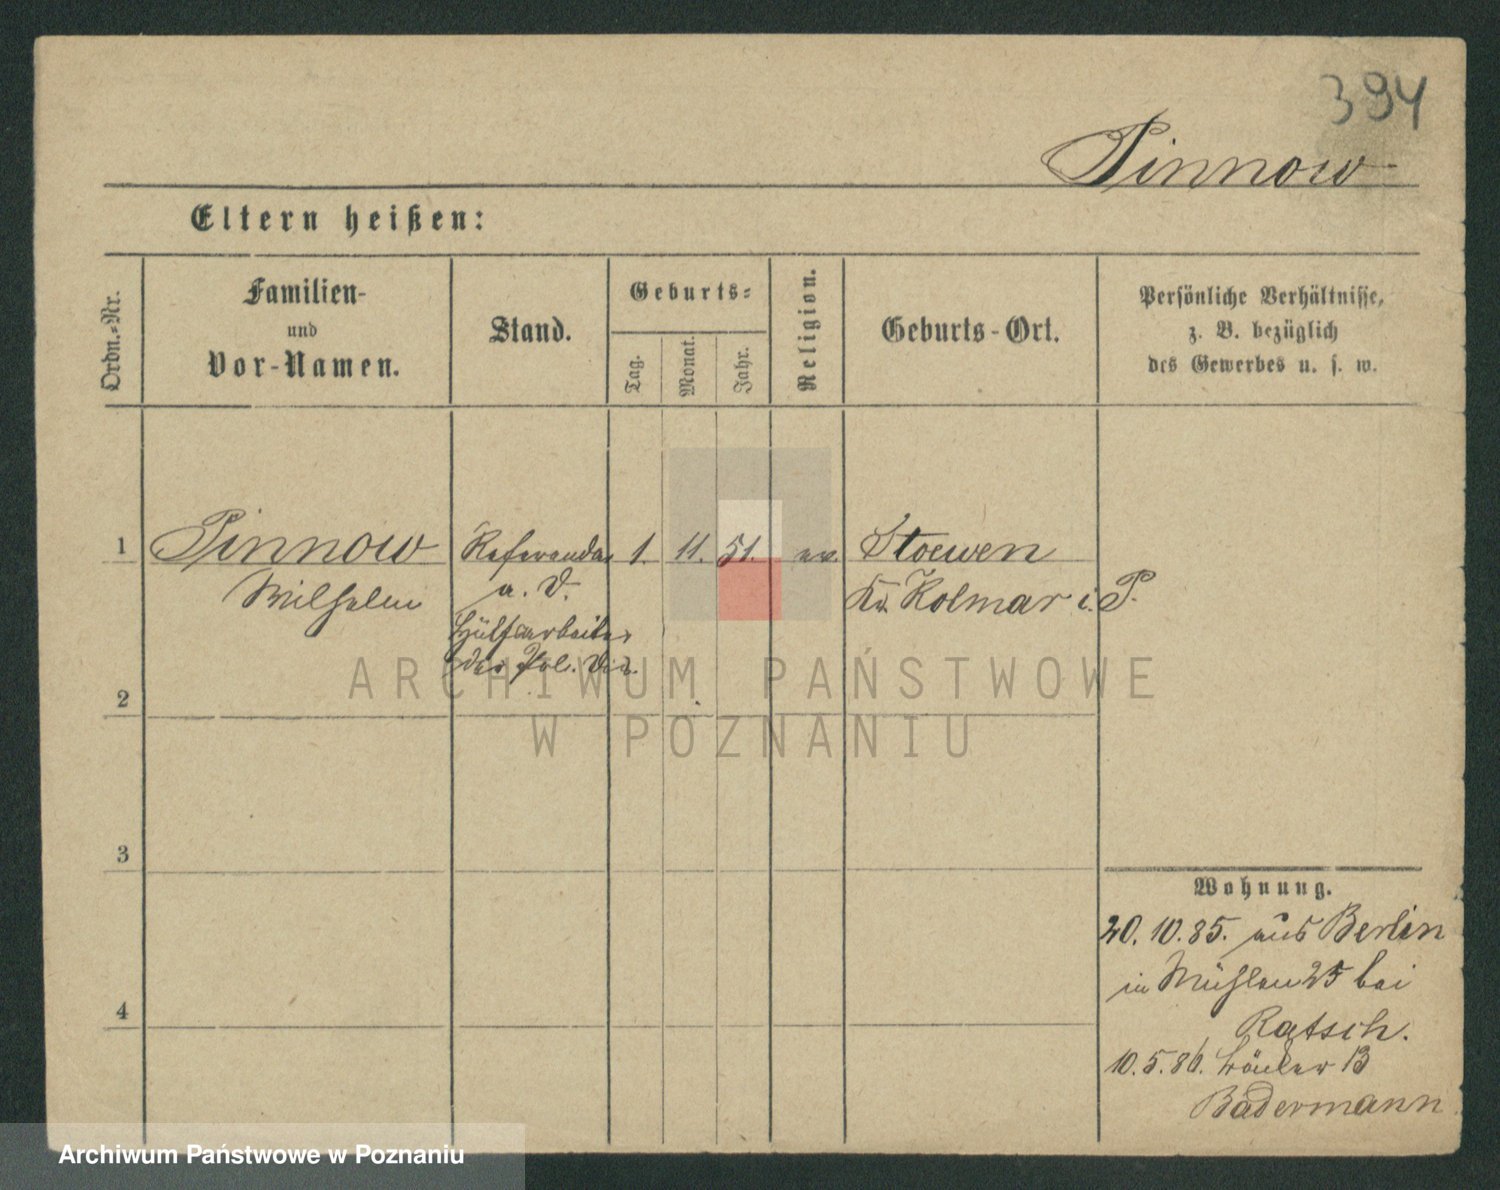 394
Pinnow
Eltern heißen:
Ordn.-Nr.
Familien-
und
Vor-Namen.
Stand.
Geburts-
Tag.
Monat.
Jahr.
Religion.
Geburts-Ort.
Persönliche Verhältnisse,
z. B. bezüglich
des Gewerbes u. s. w.
1 Pinnow Referendar 1. 11. 51. ev. Stoewen
Wilhelm a. D. Kr. Kolmar i. P.
Hülfsarbeiter
der Pol. Dir.
ARCHIWUM PAŃSTWOWE
W POZNANIU
2
3
4
Wohnung.
20. 10. 85. aus Berlin
in Mühlen 25 bei
Ratsch.
10. 5. 86. 13
Badermann
Archiwum Państwowe w Poznaniu